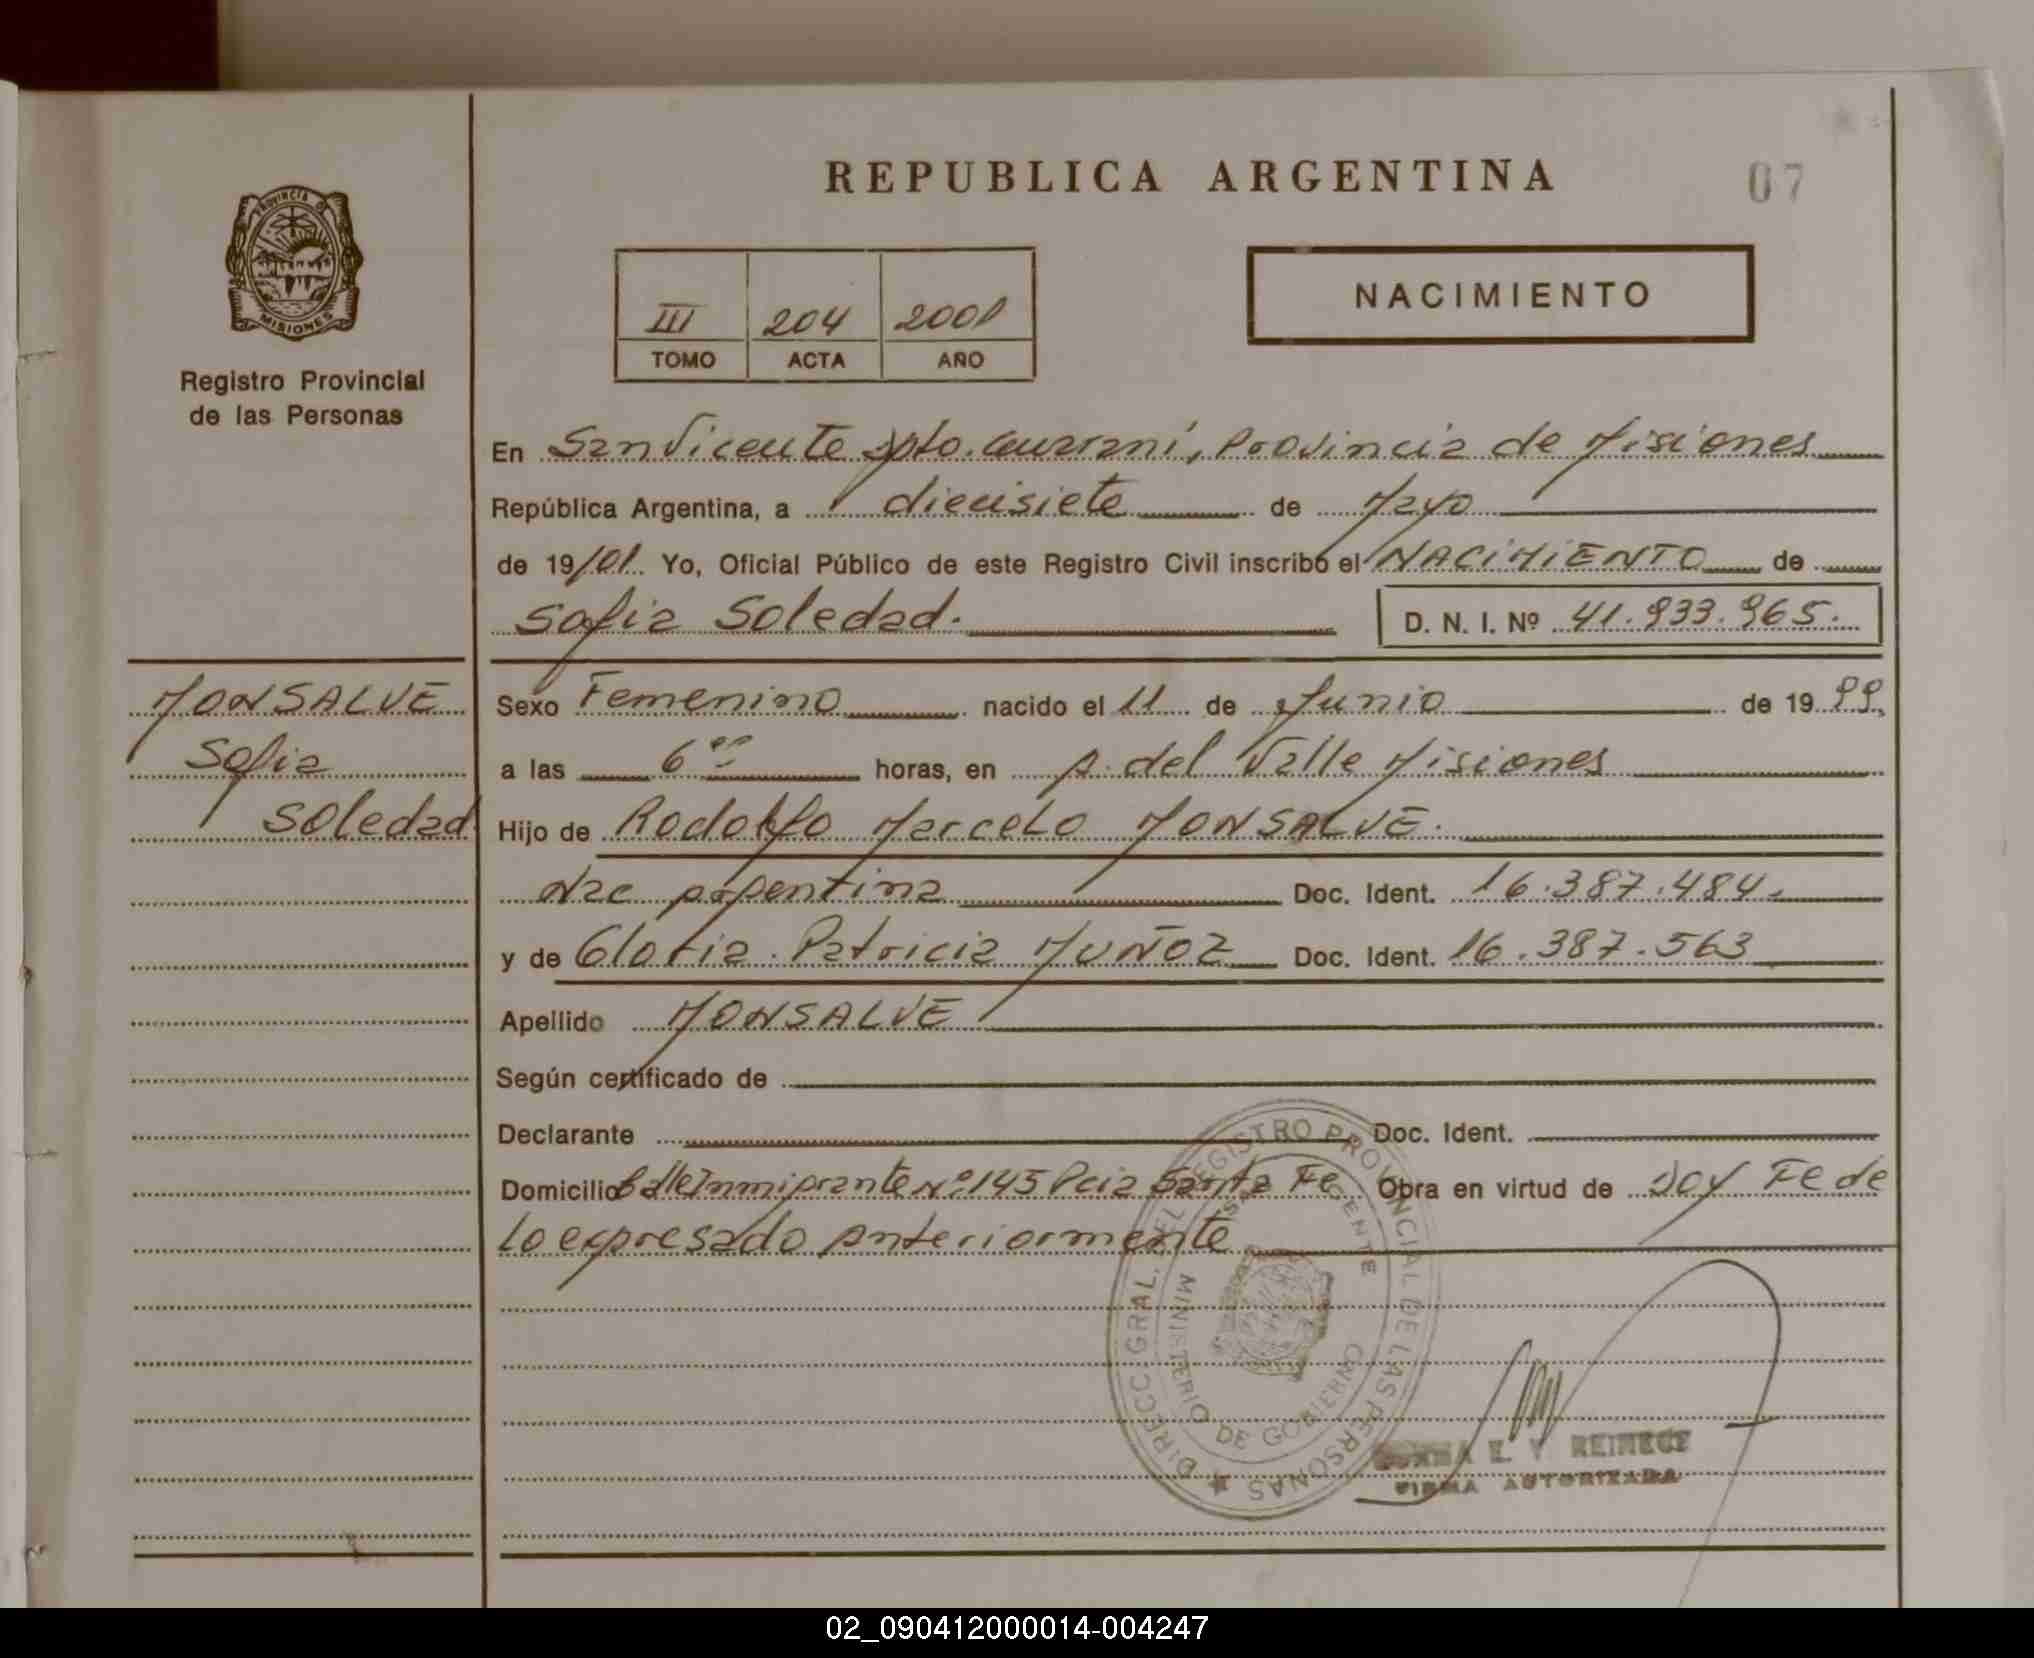 REPUBLICA ARGENTINA
07
PROVINCIA DE
MISIONES
Registro Provincial
de las Personas
III 204 2001
TOMO ACTA AÑO
NACIMIENTO
En San Vicente Dpto. Guaraní, Provincia de Misiones
República Argentina, a diecisiete de Mayo
de 19/01 Yo, Oficial Público de este Registro Civil inscribo el NACIMIENTO de
Sofia Soledad.
D. N. I. Nº 41.933.965.
MONSALVE
Sofia
Soledad
Sexo Femenino nacido el 11 de Junio de 1999
a las 6°° horas, en A. del Valle Misiones
Hijo de Rodolfo Marcelo MONSALVE.
Nac Argentina Doc. Ident. 16.387.484.
y de Gloria Patricia MUÑOZ Doc. Ident. 16.387.563
Apellido MONSALVE
Según certificado de
Declarante Doc. Ident.
Domicilio Calle Inmigrante Nº 145 Pcia Santa Fe Obra en virtud de Doy Fe de
lo expresado Anteriormente
DIRECC. GRAL. DEL REGISTRO PROVINCIAL DE LAS PERSONAS
MINISTERIO DE GOBIERNO
E. V REINECE
FIRMA AUTORIZADA
02_090412000014-004247